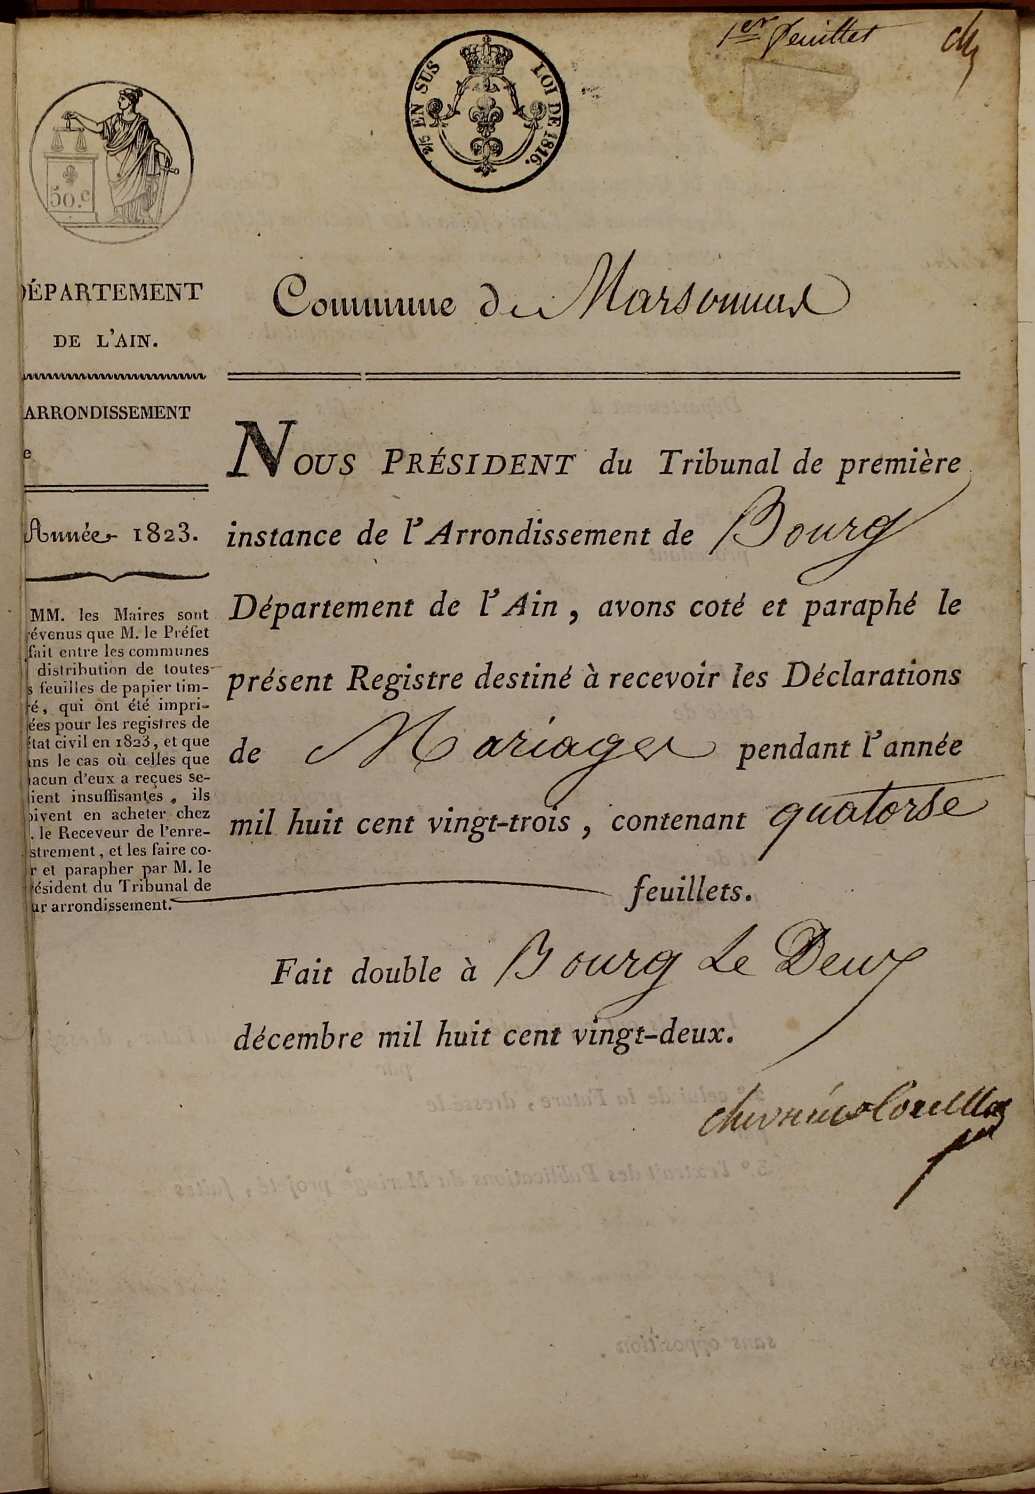 1er feuillet
2/5 EN SUS LOI DE 1816.
50.c
DÉPARTEMENT
DE L'AIN.
ARRONDISSEMENT
e
Année 1823.
MM. les Maires sont
révenus que M. le Préfet
fait entre les communes
distribution de toutes
s feuilles de papier tim-
ré, qui ont été impri-
ées pour les registres de
état civil en 1823, et que
ans le cas où celles que
hacun d'eux a reçues se-
aient insuffisantes, ils
oivent en acheter chez
. le Receveur de l'enre-
istrement, et les faire co-
r et parapher par M. le
résident du Tribunal de
ur arrondissement.
Commune de Marsonnas
NOUS PRÉSIDENT du Tribunal de première
instance de l'Arrondissement de Bourg
Département de l'Ain, avons coté et paraphé le
présent Registre destiné à recevoir les Déclarations
de Mariages pendant l'année
mil huit cent vingt-trois, contenant quatorse
feuillets.
Fait double à Bourg Le Deux
décembre mil huit cent vingt-deux.